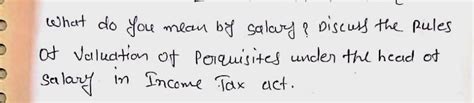 What do you mean by salary? Discuss the Rules
of Valuation of Perquisites under the head of
salary in Income Tax act.